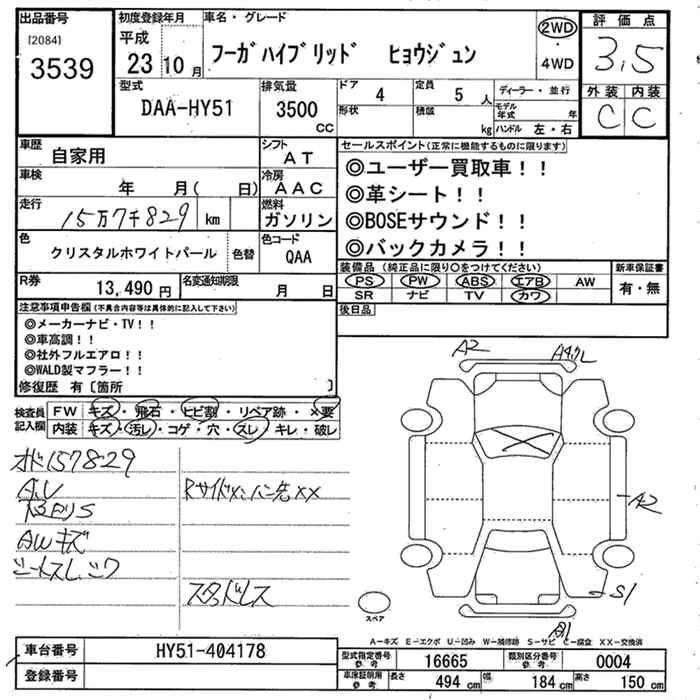 出品番号
[2084]
3539
初度登録年月
平成
23 10 月
車名・グレード
フーガハイブリッド ヒョウジュン
2WD
・
4WD
評価点
3.5
外装 内装
C C
型式
DAA-HY51
排気量
3500
CC
ドア 4
定員 5 人
形状
積載 kg
ディーラー・並行
モデル年式 年
ハンドル 左・右
車歴
自家用
シフト
AT
車検
年 月( 日)
冷房
AAC
走行
15万7千829 km
燃料
ガソリン
色
クリスタルホワイトパール
色替
色コード
QAA
R券
13,490 円
名変通知期限
月 日
セールスポイント(正常に機能するものに限ります)
◎ユーザー買取車!!
◎革シート!!
◎BOSEサウンド!!
◎バックカメラ!!
装備品 (純正品に限り○をつけてください)
新車保証書
PS PW ABS エアB AW
SR ナビ TV カワ
有・無
後日品
注意事項申告欄(不具合内容等は具体的に記入して下さい)
◎メーカーナビ・TV!!
◎車高調!!
◎社外フルエアロ!!
◎WALD製マフラー!!
修復歴 有〔箇所 〕
検査員
記入欄
FW キズ・飛石・ヒビ割・リペア跡・×要
内装 キズ・汚レ・コゲ・穴・スレ・キレ・破レ
オド157829
A.U
AWキズ
シートスレ.シワ
スタッドレス
A2
A2
S1
スペア
A-キズ E-エクボ U-凹み W-補修跡 S-サビ C-腐食 XX-交換済
車台番号
HY51-404178
登録番号
型式指定番号
参考
16665
類別区分番号
参考
0004
車庫証明用
参考
長さ 494 cm
幅 184 cm
高さ 150 cm